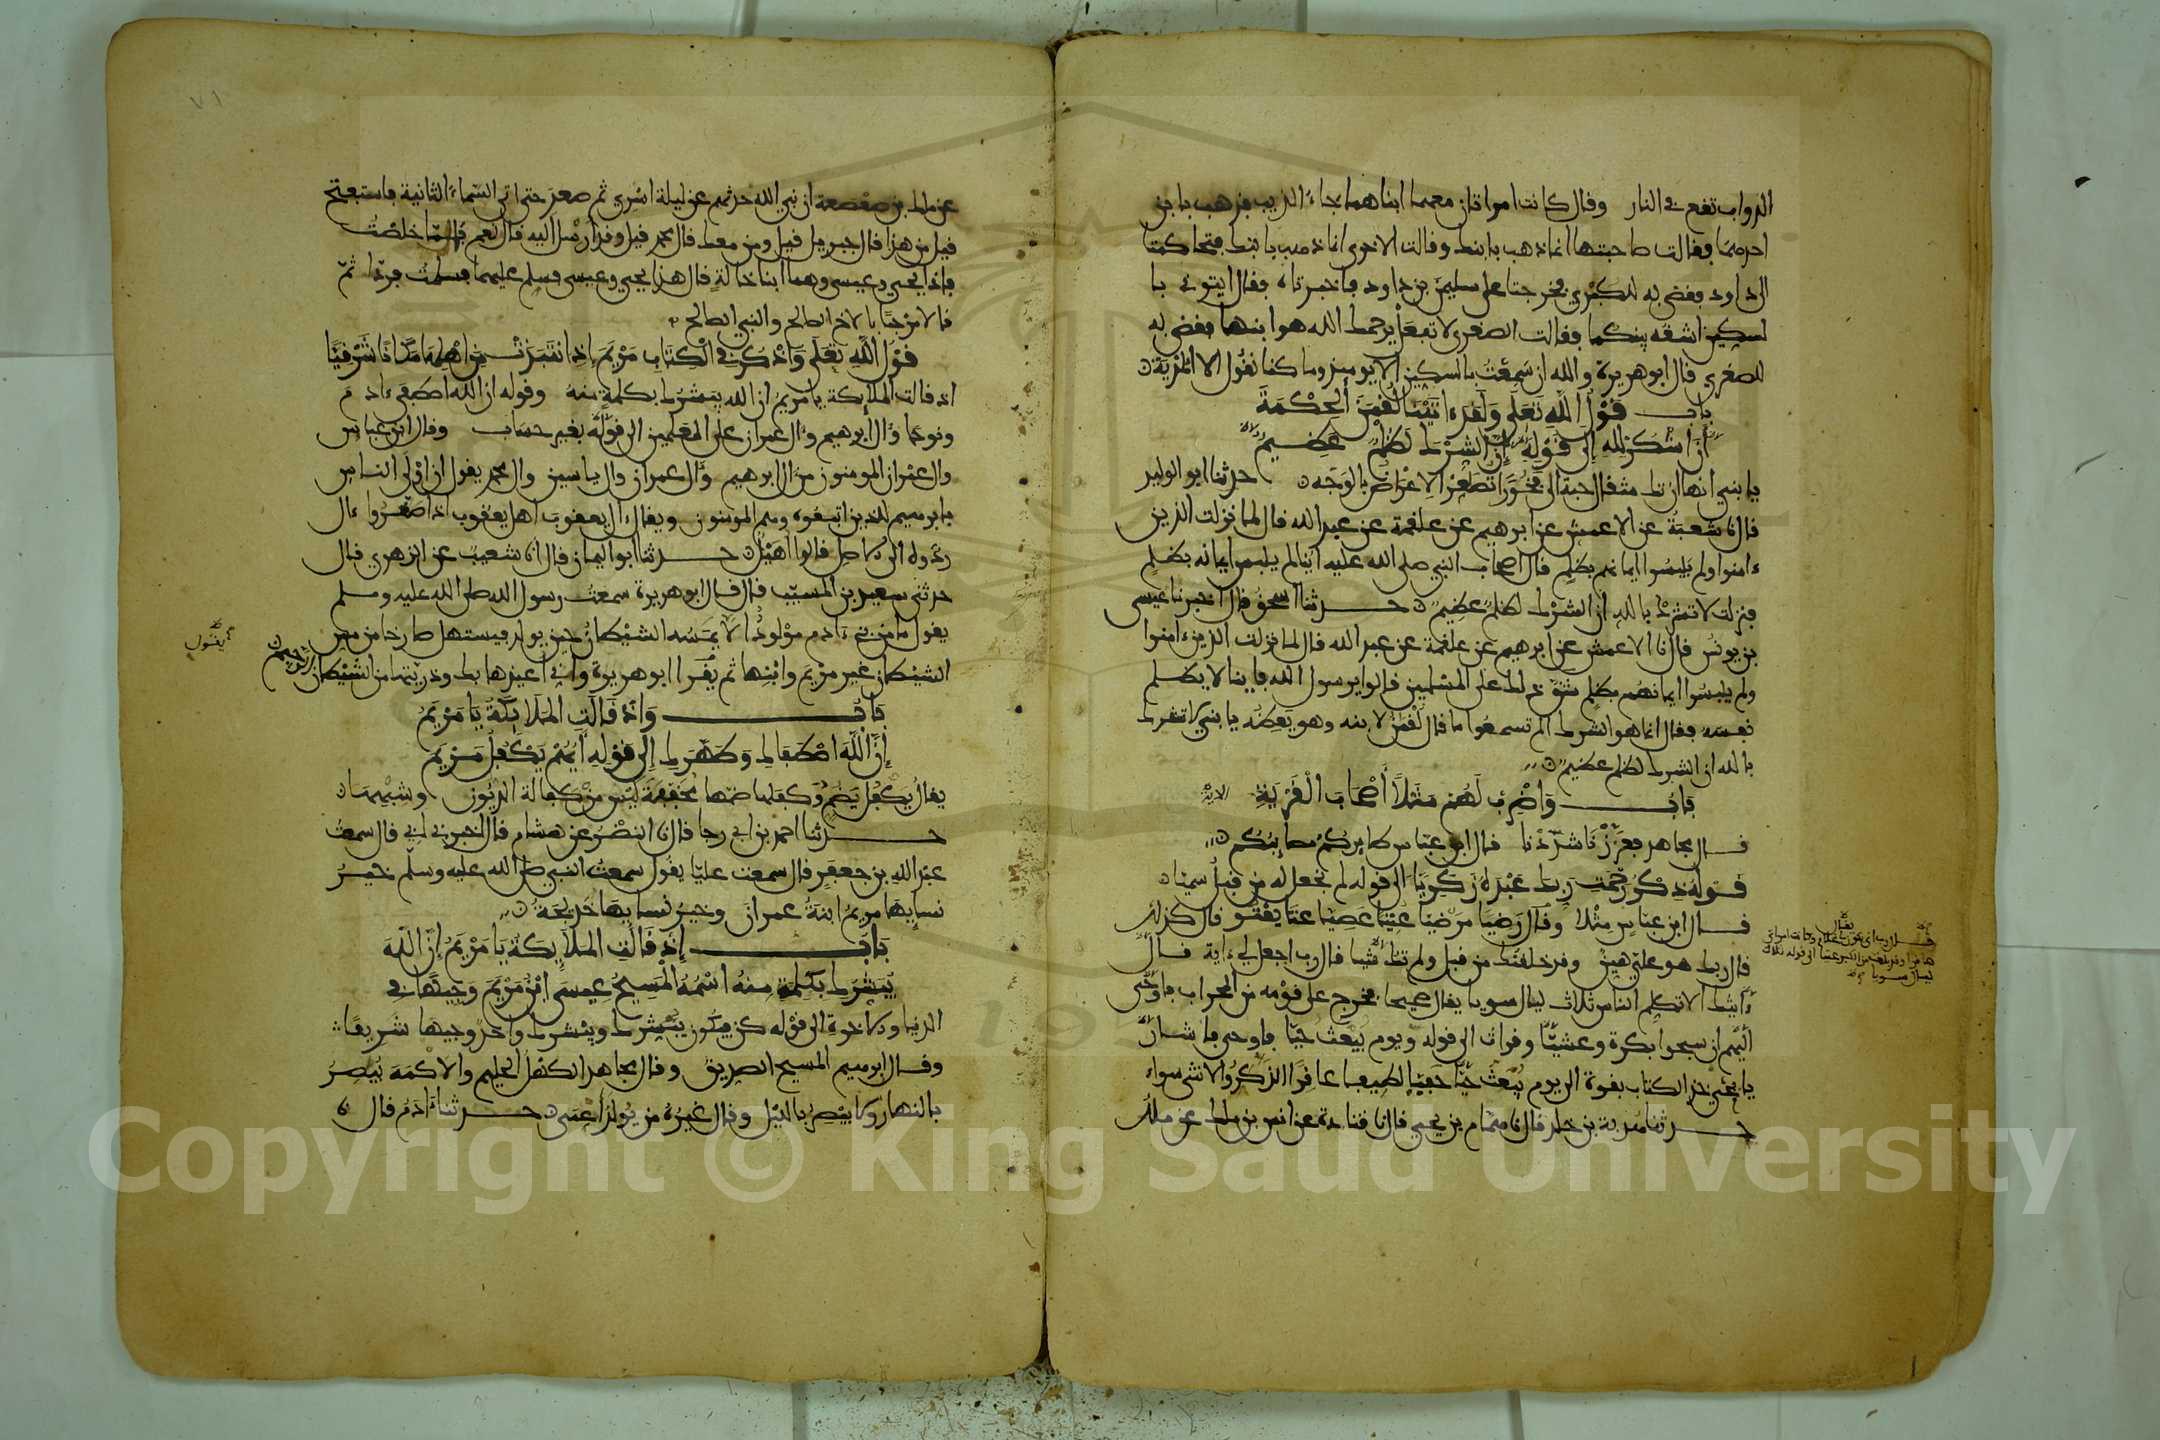 الدواب تقع في النار وقال كانت امراتان معهما ابناهما جاء الذيب فذهب بابن
احديهما فقالت صاحبتها انما ذهب بابنك وقالت الاخرى انما ذهب بابنك فتحاكمتا
الى داود فقضى به للكبرى فخرجتا على سليمن بن داود فاخبرتاه فقال ايتوني با
لسكين اشقه بينكما فقالت الصغرى لا تفعل يرحمك الله هو ابنها فقضى به
للصغرى قال ابو هريرة والله ان سمعت بالسكين الا يوميذ وما كنا نقول الا المدية
باب قول الله تعلى ولقد ءاتينا لقمن الحكمة
أن اشكر لله إلى قوله إن الشرك لظلم عظيم
يا بني انها ان تك مثقال حبة الى فخور تصعر الاعراض بالوجه حدثنا ابو الوليد
قال نا شعبة عن الاعمش عن ابرهيم عن علقمة عن عبد الله قال لما نزلت الذين
ءامنوا ولم يلبسوا ايمانهم بظلم قال اصحاب النبي صلى الله عليه اينا لم يلبس ايمانه بظلم
فنزلت لا تشرك بالله ان الشرك لظلم عظيم حدثنا اسحق قال اخبرنا عيسى
بن يونس قال نا الاعمش عن ابرهيم عن علقمة عن عبد الله قال لما نزلت الذين ءامنوا
ولم يلبسوا ايمانهم بظلم شق ذلك على المسلمين فقالوا يرسول الله فاينا لا يظلم
نفسه فقال انما هو الشرك الم تسمعوا ما قال لقمن لابنه وهو يعظه يا بني لا تشرك
بالله ان الشرك لظلم عظيم
باب واضرب لهم مثلا أصحاب القرية الاية
قال مجاهد فعززنا شددنا قال ابن عباس طايركم مصايبكم
قوله ذكر رحمت ربك عبده زكريا الى قوله لم نجعل له من قبل سميا
قال ابن عباس مثلا وقال رضيا مرضيا عتيا عصيا عتا يعتو قال كذلك
قال ربك هو علي هين وقد خلقتك من قبل ولم تك شيا قال رب اجعل لي ءاية قال
ءايتك الا تكلم الناس ثلاث ليال سويا يقال صحيحا فخرج على قومه من المحراب فاوحى
اليهم ان سبحوا بكرة وعشيا الى قوله ويوم يبعث حيا فاوحى فاشار
يا يحيى خذ الكتاب بقوة الى يوم يبعث حيا حفيا لطيفا عاقرا الذكر والانثى سواء
حدثنا هدبة بن خلد قال نا همام بن يحيى قال نا قتادة عن انس بن ملك عن ملك
عن ملك بن صعصعة ان نبي الله حدثهم عن ليلة اسري ثم صعد حتى اتى السماء الثانية فاستفتح
قيل من هذا قال جبريل قيل ومن معك قال محمد قيل وقد ارسل اليه قال نعم فلما خلصت
فاذا يحيى وعيسى وهما ابنا خالة قال هذا يحيى وعيسى فسلم عليهما فسلمت فردا ثم
قالا مرحبا بالاخ الصالح والنبي الصالح
قول الله تعلى واذكر في الكتاب مريم إذ انتبذت من اهلها مكانا شرقيا
اذ قالت الملايكة يا مريم ان الله يبشرك بكلمة منه وقوله ان الله اصطفى ءادم
ونوحا وءال ابرهيم وءال عمران على العلمين الى قوله بغير حساب وقال ابن عباس
وال عمران المومنون من ال ابرهيم وال عمران وال ياسين وال محمد يقول ان اولى الناس
بابرهيم للذين اتبعوه وهم المومنون ويقال ءال يعقوب اهل يعقوب اذا صغروا ءال
ردوه الى الاصل قالوا اهيل حدثنا ابو اليمان قال انا شعيب عن الزهري قال
حدثني سعيد بن المسيب قال قال ابو هريرة سمعت رسول الله صلى الله عليه وسلم
يقول ما من بني ءادم مولود الا يمسه الشيطان حين يولد فيستهل صارخا من مس
الشيطان غير مريم وابنها ثم يقرا ابو هريرة واني اعيذها بك وذريتها من الشيطان الرجيم
يقول
باب وإذ قالت الملايكة يا مريم
إن الله اصطفاك وطهرك إلى قوله أيهم يكفل مريم
يقال يكفل يضم وكفلها ضمها مخففة ليس من كفالة الديون وشبهها
حدثنا احمد بن ابي رجا قال نا النضر عن هشام قال اخبرني ابي قال سمعت
عبد الله بن جعفر قال سمعت عليا يقول سمعت النبي صلى الله عليه وسلم خير
نسايها مريم ابنة عمران وخير نسايها خديجة
باب إذ قالت الملايكة يا مريم إن الله
يبشرك بكلمة منه اسمه المسيح عيسى ابن مريم وجيها في
الدنيا والاخرة الى قوله كن فيكون يبشرك ويبشرك واحد وجيها شريفا
وقال ابرهيم المسيح الصديق وقال مجاهد الكهل الحليم والاكمه يبصر
بالنهار ولا يبصر بالليل وقال غيره من يولد اعمى حدثنا ءادم قال نا
Copyright © King Saud University